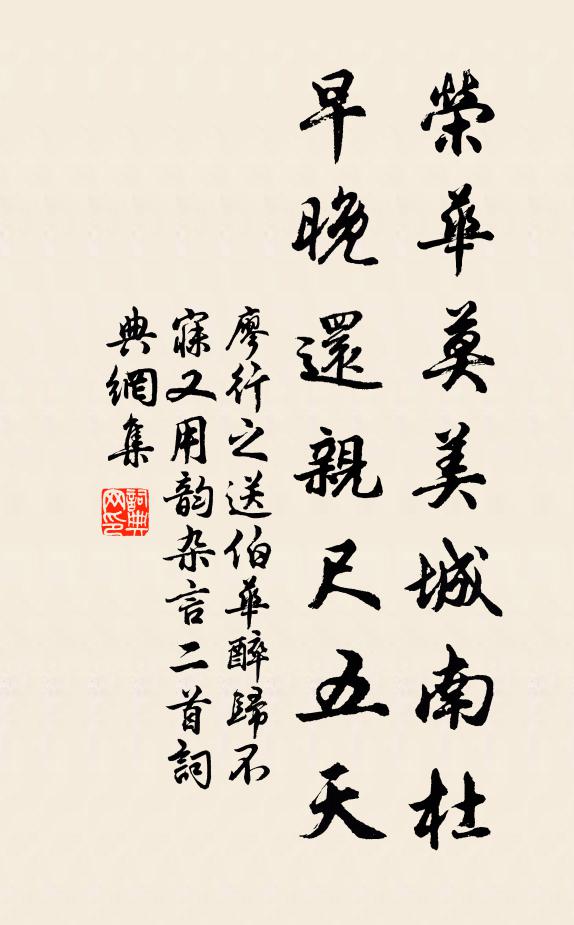 榮華莫美城南杜
早晚還親尺五天
廖行之送伯華醉歸不
寐又用韵杂言二首詞
典網集
詞典
网印